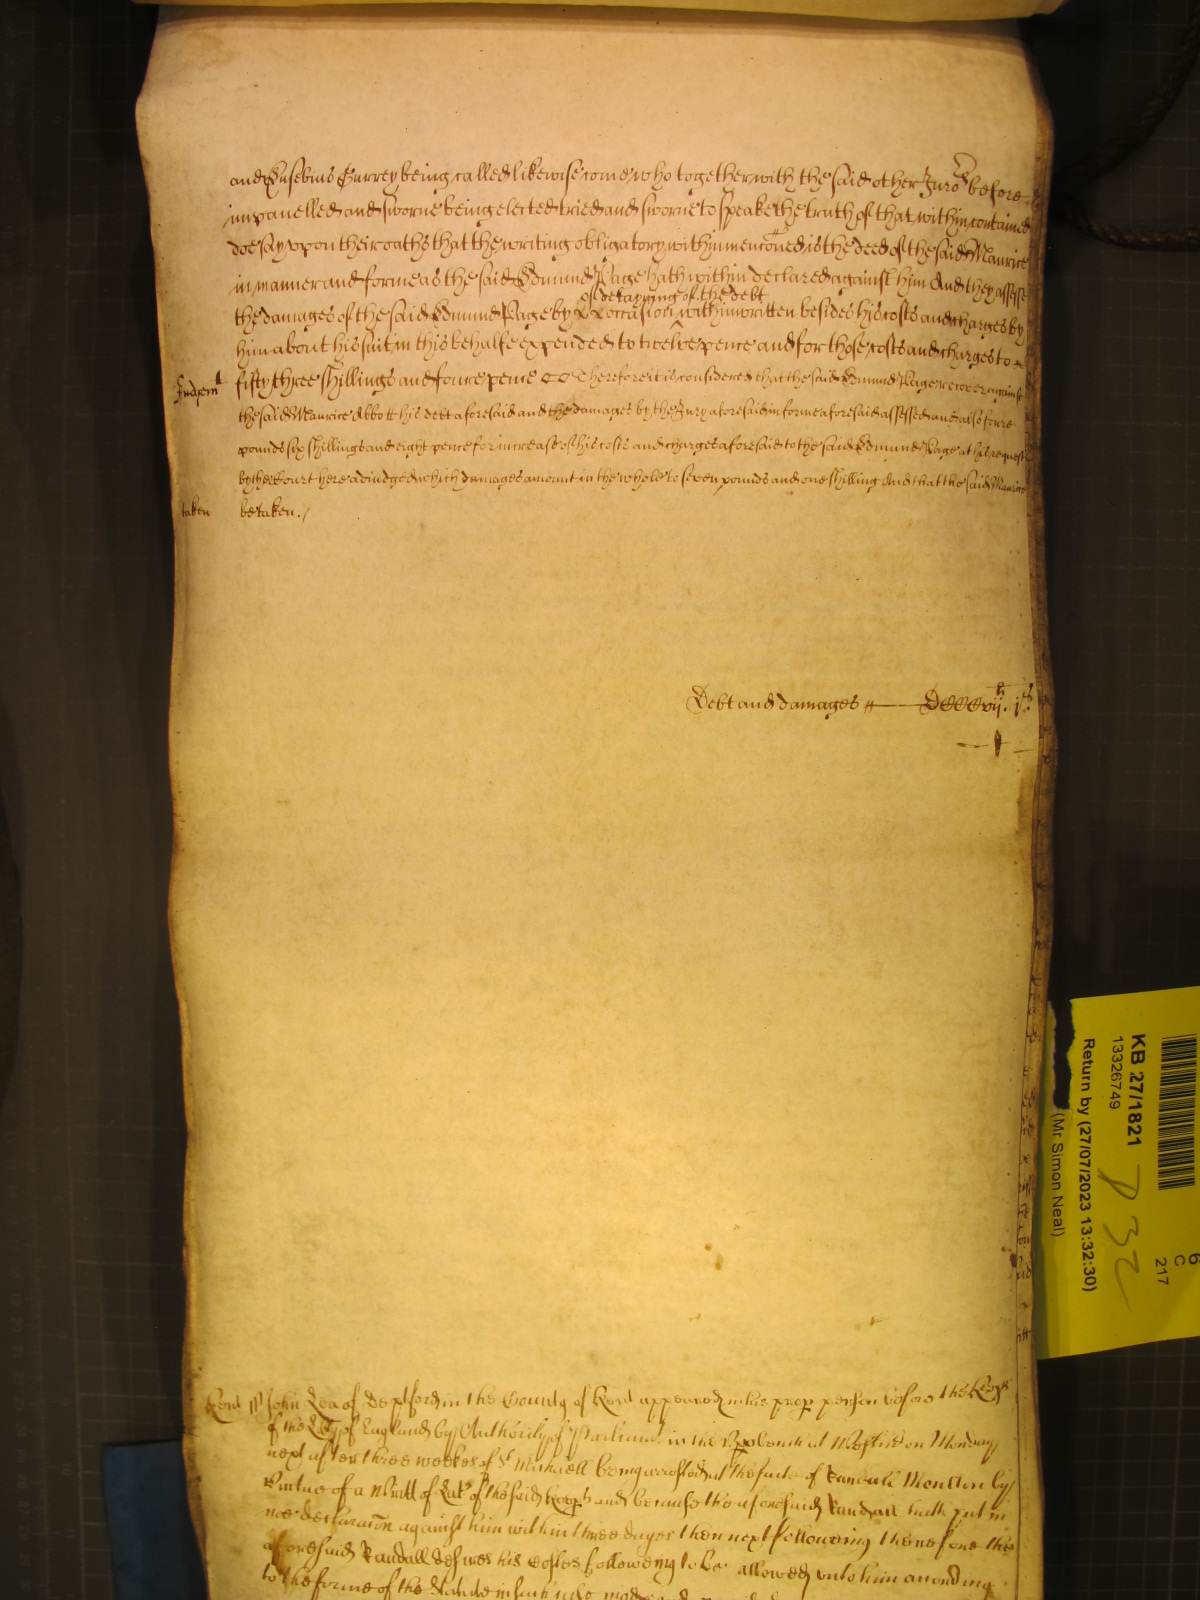 and Eusebius Currey being called likewise come who together with the said other Juro.rs before
impanelled and sworne being elected tried and sworne to speake the truth of that within contained
doe say upon their oaths that the writing obligatory within menconed is the deed of the said Maurice
in manner and forme as the said Edmund Page hath within declared against him And they assesse
of detayning of the debt
the damages of the said Edmund Page by occasion within written besides his costs and charges by
him about his suit in this behalfe expended to twelve pence and for those costs and charges to
Judgem.t
fifty three shillings and foure pence Therefore it is considered that the said Edmund Page recover against
the said Maurice Abbott his debt aforesaid and the damages by the Jury aforesaid in forme aforesaid assessed and also foure
pounds six shillings and eight pence for increase of his costs and charges aforesaid to the said Edmund Page at his request
by the Court here adiudged which damages amount in the whole to seven pounds and one shilling And that the said Maurice
taken
be taken.
Debt and damages DCCCvij.li j.s
Kent ss John Lea of Deptford in the County of Kent appeared in his prop person before the Keep.rs
of the Lib.ty of England by Authority of Parliam.t in the Upp bench at Westm.r on Monday
next after three weekes of S.t Michaell being arrested at the suite of Randall Moulten by
virtue of a Writt of Lat.t of the said Keep.rs and because the aforesaid Randall hath put in
noe declaracon against him within three dayes then next following therefore the
aforesaid Randall desires his Costes following to be allowed unto him according
to the forme of the Statute in such case made and
KB 27/1821
13326749
Return by (27/07/2023 13:32:30)
(Mr Simon Neal)
P 32
6
C
217